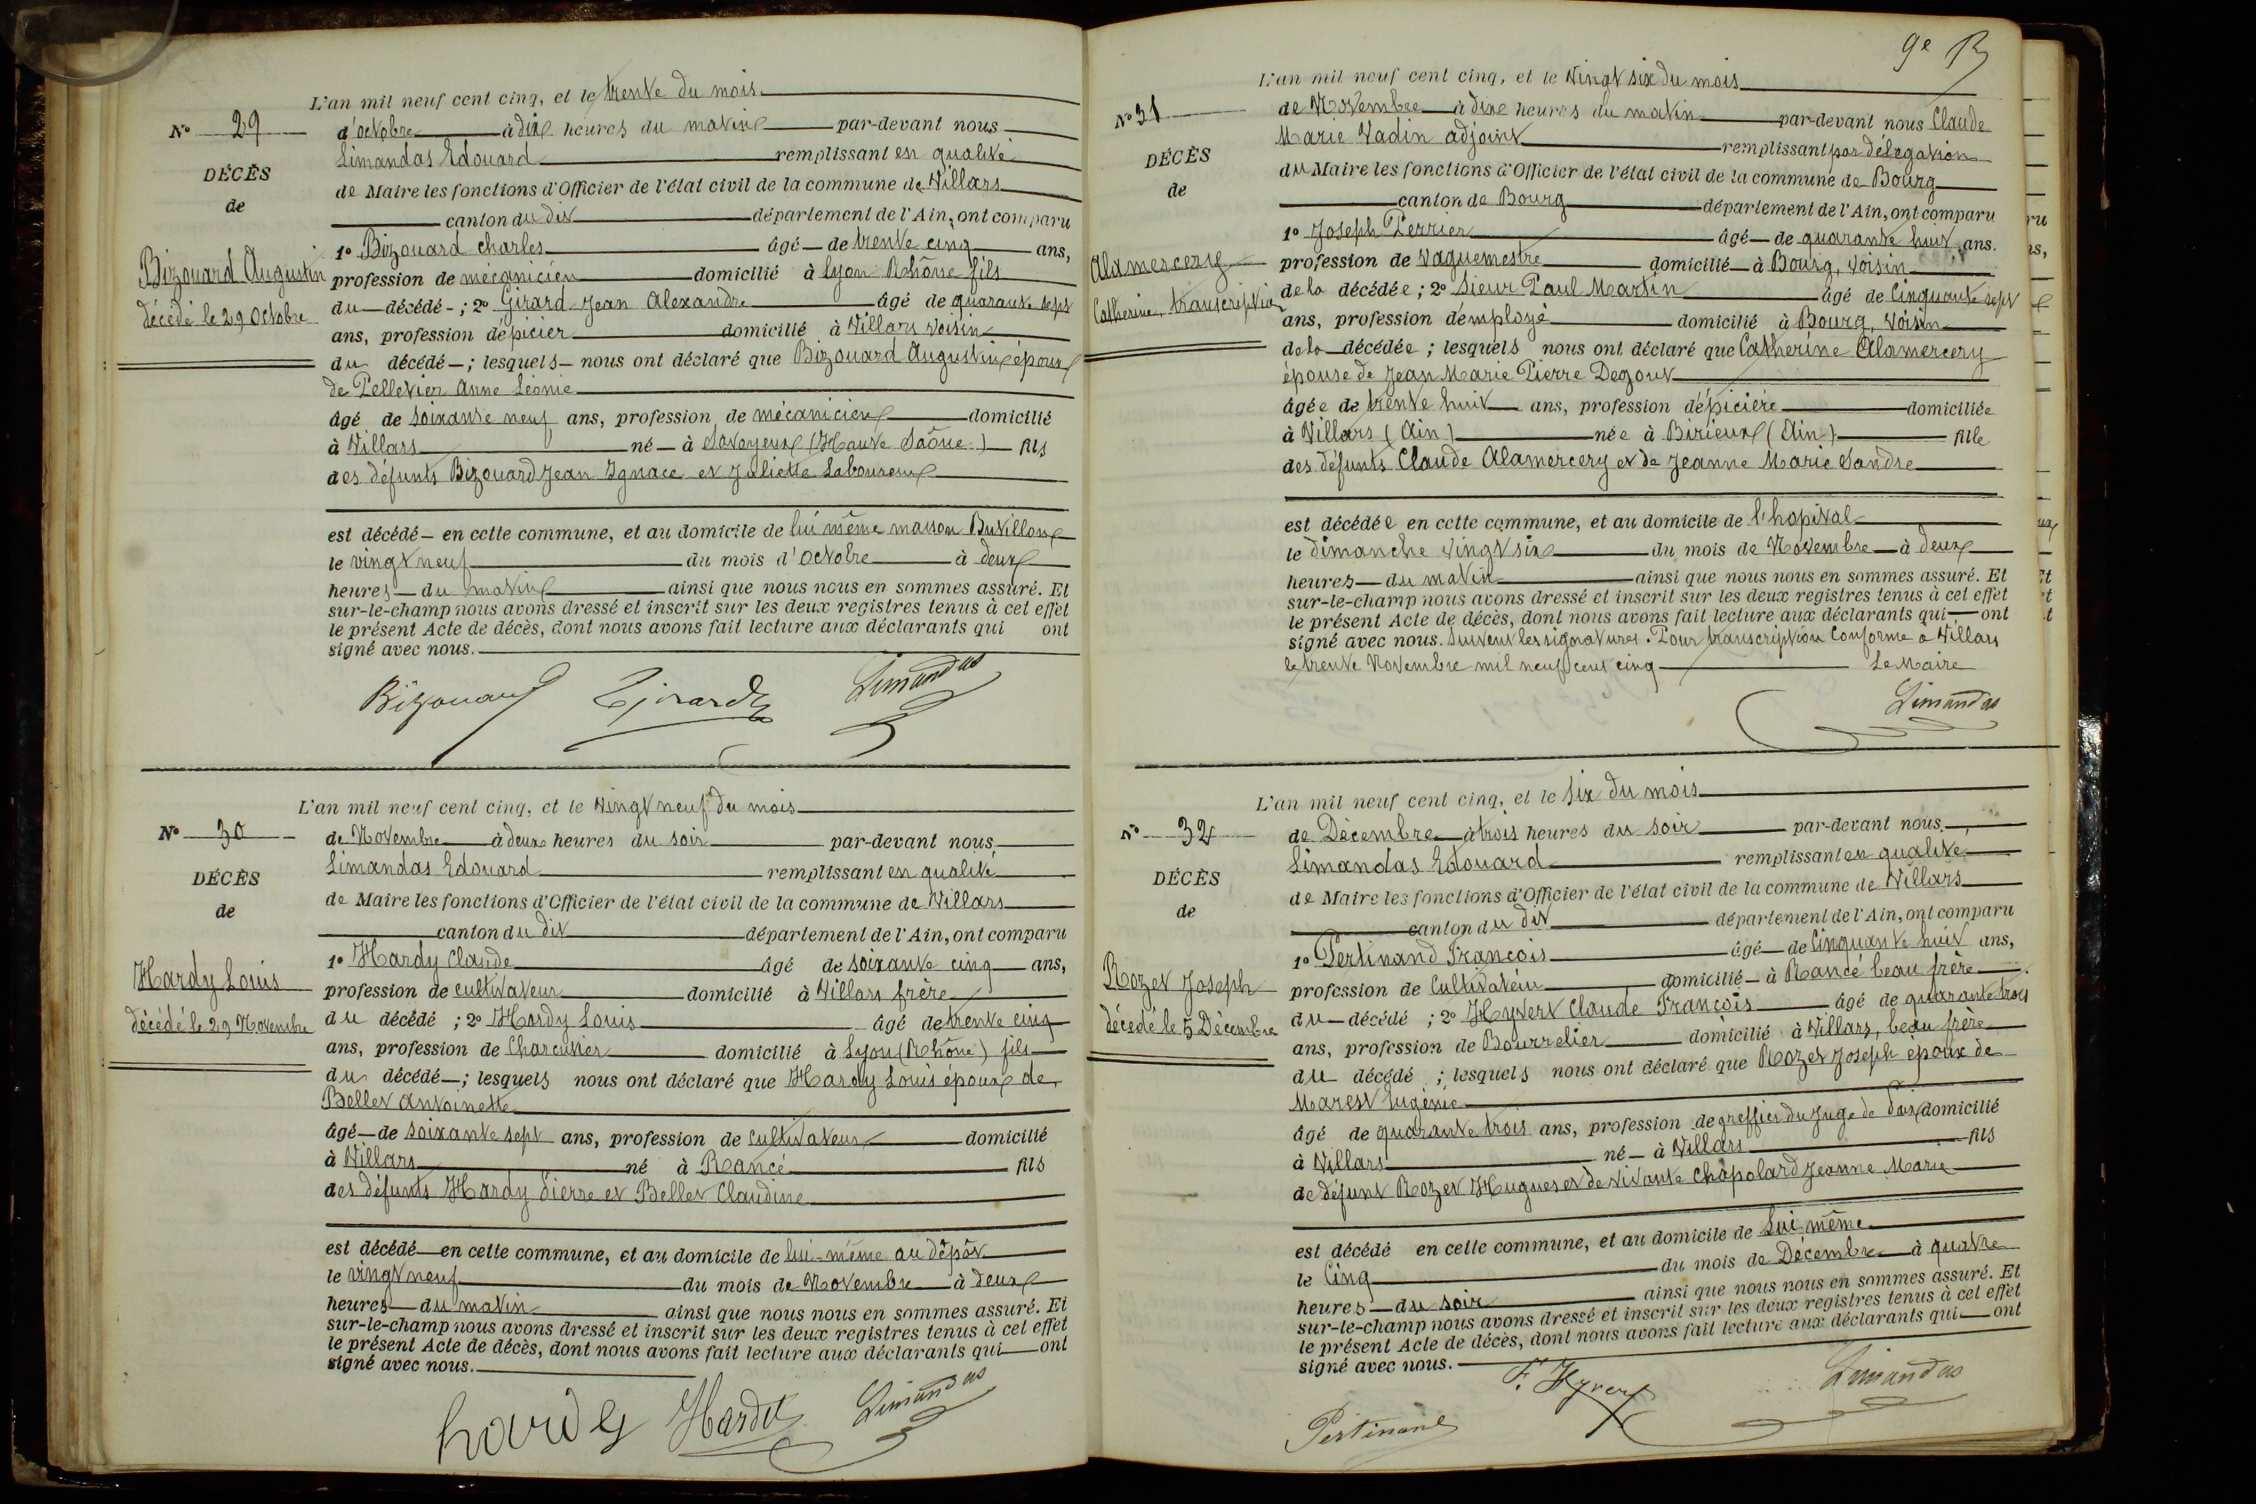 L'an mil neuf cent cinq, et le trente du mois
N° 29
d'octobre à dix heures du matin par-devant nous
Limandas Edouard remplissant en qualité
DÉCÈS
de Maire les fonctions d'Officier de l'état civil de la commune de Villars
de
canton du dit département de l'Ain, ont comparu
1° Bizouard Charles âgé de trente cinq ans,
Bizouard Augustin
profession de mécanicien domicilié à Lyon Rhône fils
décédé le 29 Octobre
du décédé ; 2° Girard Jean Alexandre âgé de quarante sept
ans, profession d'épicier domicilié à Villars voisin
du décédé ; lesquels nous ont déclaré que Bizouard Augustin époux
de Pelletier Anne Léonie
âgé de soixante neuf ans, profession de mécanicien domicilié
à Villars né à Savoyeux (Haute Saône) fils
des défunts Bizouard Jean Ignace et Juliette Laboureur
est décédé en cette commune, et au domicile de lui même maison Buvillon
le vingt neuf du mois d'octobre à deux
heures du matin ainsi que nous nous en sommes assuré. Et
sur-le-champ nous avons dressé et inscrit sur les deux registres tenus à cet effet
le présent Acte de décès, dont nous avons fait lecture aux déclarants qui ont
signé avec nous.
Bizouard Girard Limandas
L'an mil neuf cent cinq, et le vingt neuf du mois
N° 30
de Novembre à deux heures du soir par-devant nous
Limandas Edouard remplissant en qualité
DÉCÈS
de Maire les fonctions d'Officier de l'état civil de la commune de Villars
de
canton du dit département de l'Ain, ont comparu
1° Hardy Claude âgé de soixante cinq ans,
Hardy Louis
profession de cultivateur domicilié à Villars frère
décédé le 29 Novembre
du décédé ; 2° Hardy Louis âgé de trente cinq
ans, profession de Charcutier domicilié à Lyon (Rhône) fils
du décédé ; lesquels nous ont déclaré que Hardy Louis époux de
Bellet Antoinette
âgé de soixante sept ans, profession de cultivateur domicilié
à Villars né à Rancé fils
des défunts Hardy Pierre et Bellet Claudine
est décédé en cette commune, et au domicile de lui-même au dépôt
le vingt neuf du mois de Novembre à deux
heures du matin ainsi que nous nous en sommes assuré. Et
sur-le-champ nous avons dressé et inscrit sur les deux registres tenus à cet effet
le présent Acte de décès, dont nous avons fait lecture aux déclarants qui ont
signé avec nous.
hardy Hardy Limandas
9e
L'an mil neuf cent cinq, et le vingt six du mois
N° 31
de Novembre à dix heures du matin par-devant nous Claude
Marie Vadin adjoint remplissant par délégation
DÉCÈS
du Maire les fonctions d'Officier de l'état civil de la commune de Bourg
de
canton de Bourg département de l'Ain, ont comparu
1° Joseph Perrier âgé de quarante huit ans.
Alamercery
profession de vaguemestre domicilié à Bourg, voisin
Catherine, transcription
de la décédée ; 2° Sieur Paul Martin âgé de cinquante sept
ans, profession d'employé domicilié à Bourg, voisin
de la décédée ; lesquels nous ont déclaré que Catherine Alamercery
épouse de Jean Marie Pierre Degout
âgée de trente huit ans, profession d'épicière domiciliée
à Villars (Ain) née à Birieux (Ain) fille
des défunts Claude Alamercery et de Jeanne Marie Sandre
est décédée en cette commune, et au domicile de l'hopital
le dimanche vingt six du mois de Novembre à deux
heures du matin ainsi que nous nous en sommes assuré. Et
sur-le-champ nous avons dressé et inscrit sur les deux registres tenus à cet effet
le présent Acte de décès, dont nous avons fait lecture aux déclarants qui ont
signé avec nous. Suivent les signatures. Pour transcription conforme à Villars
le trente Novembre mil neuf cent cinq Le Maire
Limandas
L'an mil neuf cent cinq, et le six du mois
N° 32
de Décembre à trois heures du soir par-devant nous
Limandas Edouard remplissant en qualité
DÉCÈS
de Maire les fonctions d'Officier de l'état civil de la commune de Villars
de
canton du dit département de l'Ain, ont comparu
1° Pertinand François âgé de cinquante huit ans,
Rozet Joseph
profession de Cultivateur domicilié à Rancé beau frère
décédé le 5 Décembre
du décédé ; 2° Hyvert Claude François âgé de quarante trois
ans, profession de Bourrelier domicilié à Villars, beau frère
du décédé ; lesquels nous ont déclaré que Rozet Joseph époux de
Marest Eugénie
âgé de quarante trois ans, profession de greffier du Juge de Paix domicilié
à Villars né à Villars fils
de défunt Rozet Hugues et de vivante Chapolard Jeanne Marie
est décédé en cette commune, et au domicile de Lui même
le Cinq du mois de Décembre à quatre
heures du soir ainsi que nous nous en sommes assuré. Et
sur-le-champ nous avons dressé et inscrit sur les deux registres tenus à cet effet
le présent Acte de décès, dont nous avons fait lecture aux déclarants qui ont
signé avec nous.
F. Hyvert Limandas
Pertinand